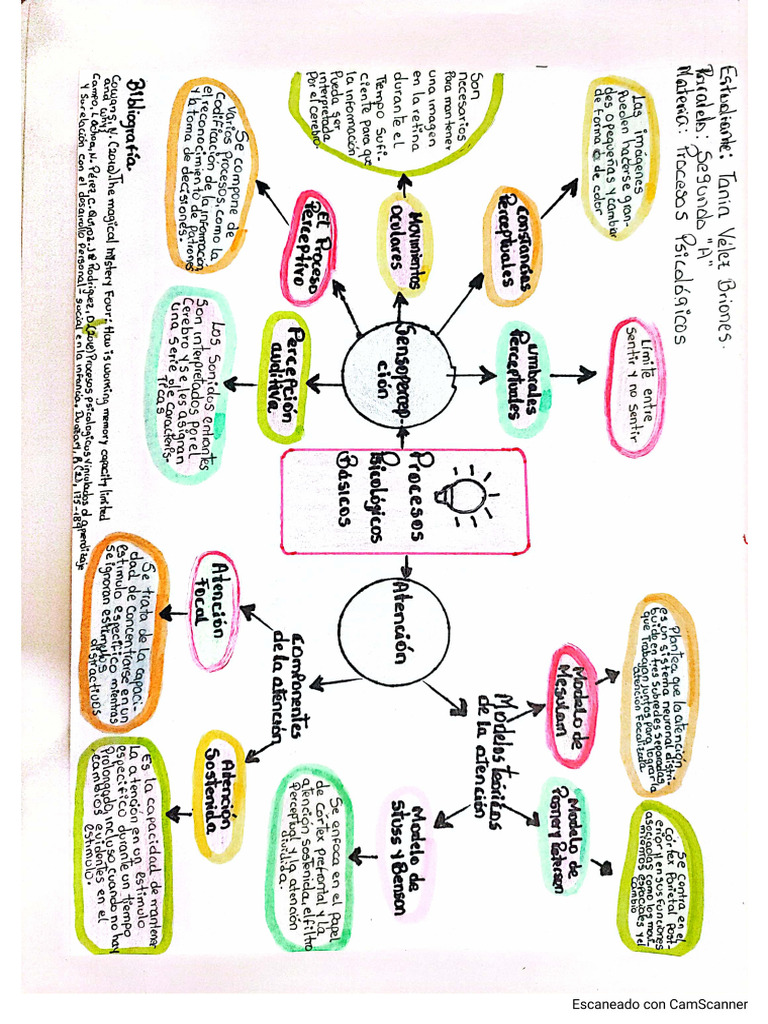 Estudiante: Tania Vélez Briones.
Paralelo: Segundo "A"
Materia: Procesos Psicológicos
Las imágenes
Pueden hacerse gran-
des o pequeñas y cambiar
de forma o de color
Constancias
Perceptuales
Límite entre
sentir y no sentir
Umbrales
Perceptuales
Son
necesarios
Para mantener
una imagen
en la retina
durante el
Tiempo sufi-
ciente para que
la información
Pueda ser
interpretada
Por el cerebro.
Movimientos
oculares
El Proceso
Perceptivo
Se compone de
varios procesos, como la
codificación de la información
el reconocimiento de Patrones
y la toma de decisiones.
Sensopercep-
ción
Percepción
auditiva
Los sonidos entrantes
son interpretados por el
Cerebro y se les asignan
una serie de caracterís-
ticas
Procesos
Psicológicos
Básicos
Atención
Modelos teóricos
de la atención
Modelo de
Mesulam
Plantea que la atención
es un sistema neuronal distri-
buido en tres subredes separadas
que trabajan juntas para lograr la
atención focalizada
Modelo de
Posner y Peterson
Se centra en el
córtex Parietal Post-
erior en sus funciones
asociadas como los
espaciales y el
cambio
Modelo de
Stuss y Benson
Se enfoca en el papel
de córtex prefrontal y la
atención sostenida, el filtro
perceptual y la atención
dividida.
componentes
de la atención
Atención
Focal
Se trata de la capaci-
dad de concentrarse en un
estimulo especifico mientras
se ignoran estimulos
distractivos
Atención
Sostenida
Es la capacidad de mantener
la atención en un estimulo
especifico durante un tiempo
Prolongado, incluso cuando no hay
cambios evidentes en el
estimulo.
Bibliografía
Cowan, N. (2010) The magical Mistery Four: How is working memory capacity limited
and why?
Campo, L Ochoa, N. Pérez, C. Quiroz, J & Rodriguez, D. Procesos psicologicos vinculados al aprendizaje
y su relación con el desarrollo personal-social en la infancia. Duazary, 8(2), 175-189
Escaneado con CamScanner